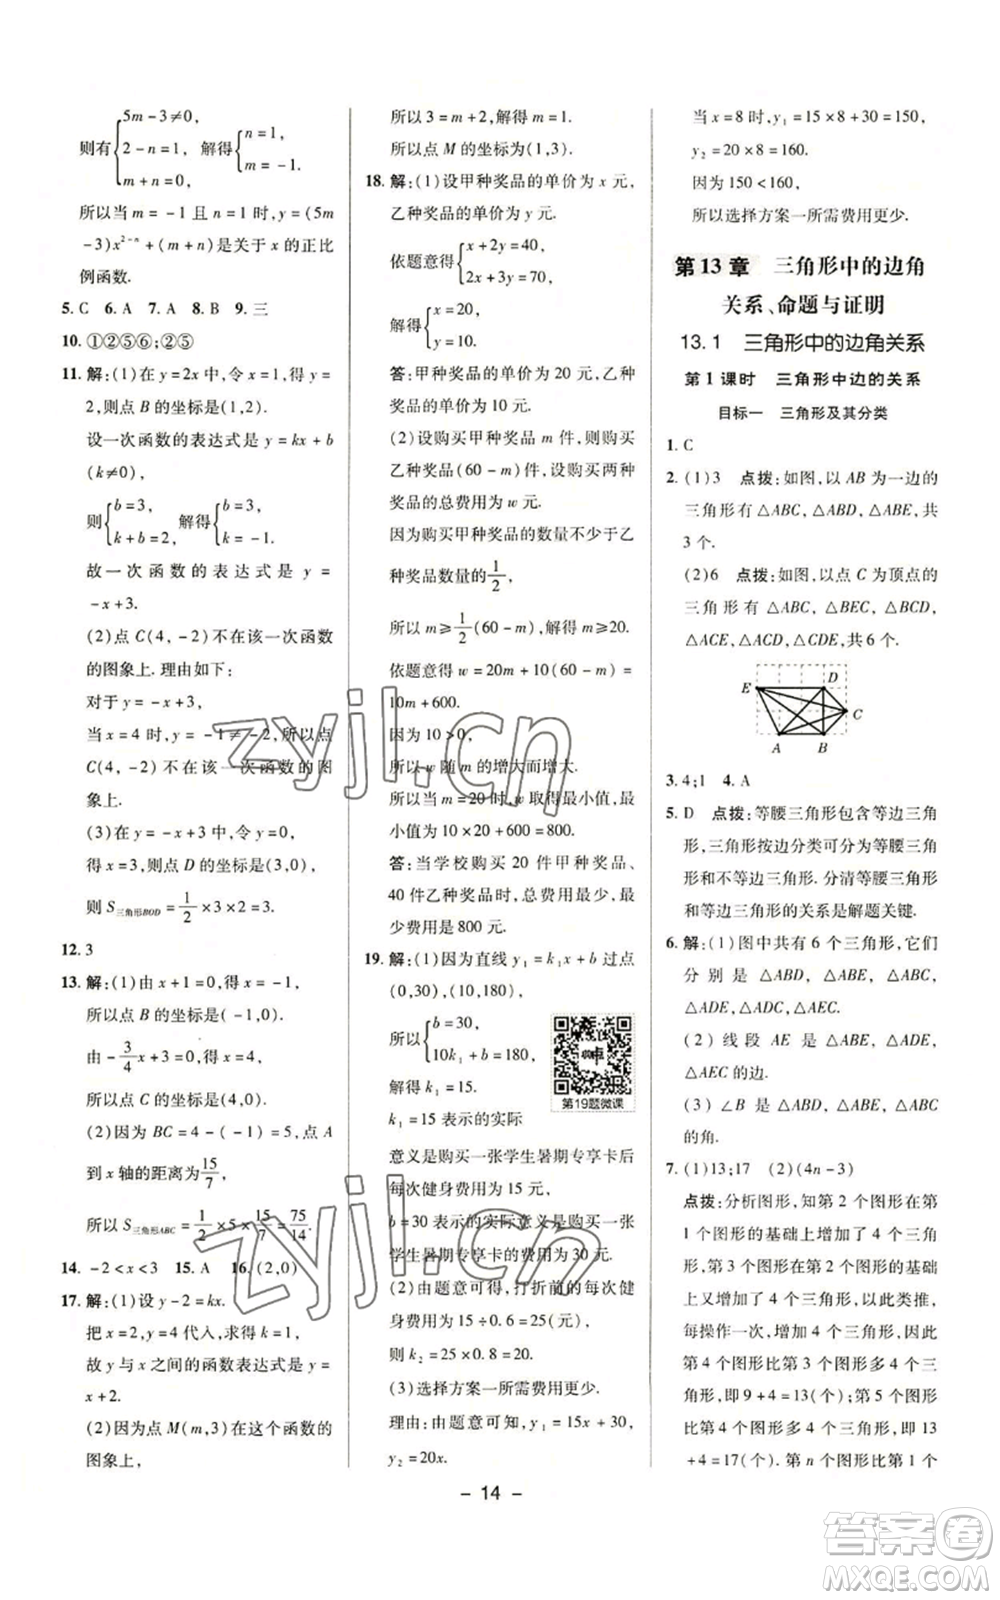 则有{5m-3≠0, 2-n=1, m+n=0, 解得{n=1, m=-1.
所以当 m=-1 且 n=1 时,y=(5m
-3)x^{2-n}+(m+n)是关于 x 的正比
例函数.
5. C 6. A 7. A 8. B 9. 三
10. ①②⑤⑥;②⑤
11. 解:(1)在 y=2x 中,令 x=1,得 y=
2,则点 B 的坐标是(1,2).
设一次函数的表达式是 y=kx+b
(k≠0),
则{b=3, k+b=2, 解得{b=3, k=-1.
故一次函数的表达式是 y=
-x+3.
(2)点 C(4,-2)不在该一次函数
的图象上. 理由如下:
对于 y=-x+3,
当 x=4 时,y=-1≠-2,所以点
C(4,-2)不在该一次函数的图
象上.
(3)在 y=-x+3 中,令 y=0,
得 x=3,则点 D 的坐标是(3,0),
则 S三角形BOD=1/2×3×2=3.
12. 3
13. 解:(1)由 x+1=0,得 x=-1,
所以点 B 的坐标为(-1,0).
由-3/4x+3=0,得 x=4,
所以点 C 的坐标为(4,0).
(2)因为 BC=4-(-1)=5,点 A
到 x 轴的距离为15/7,
所以 S三角形ABC=1/2×5×15/7=75/14.
14. -2<x<3 15. A 16. (2,0)
17. 解:(1)设 y-2=kx.
把 x=2,y=4 代入,求得 k=1,
故 y 与 x 之间的函数表达式是 y=
x+2.
(2)因为点 M(m,3)在这个函数的
图象上,
所以 3=m+2,解得 m=1.
所以点 M 的坐标为(1,3).
18. 解:(1)设甲种奖品的单价为 x 元,
乙种奖品的单价为 y 元.
依题意得{x+2y=40, 2x+3y=70,
解得{x=20, y=10.
答:甲种奖品的单价为 20 元,乙种
奖品的单价为 10 元.
(2)设购买甲种奖品 m 件,则购买
乙种奖品(60-m)件,设购买两种
奖品的总费用为 w 元.
因为购买甲种奖品的数量不少于乙
种奖品数量的1/2,
所以 m≥1/2(60-m),解得 m≥20.
依题意得 w=20m+10(60-m)=
10m+600.
因为 10>0,
所以 w 随 m 的增大而增大.
所以当 m=20 时,w 取得最小值,最
小值为 10×20+600=800.
答:当学校购买 20 件甲种奖品、
40 件乙种奖品时,总费用最少,最
少费用是 800 元.
19. 解:(1)因为直线 y₁=k₁x+b 过点
(0,30),(10,180),
所以{b=30, 10k₁+b=180,
解得 k₁=15.
第19题微课
k₁=15 表示的实际
意义是购买一张学生暑期专享卡后
每次健身费用为 15 元,
b=30 表示的实际意义是购买一张
学生暑期专享卡的费用为 30 元.
(2)由题意可得,打折前的每次健
身费用为 15÷0.6=25(元),
则 k₂=25×0.8=20.
(3)选择方案一所需费用更少.
理由:由题意可知,y₁=15x+30,
y₂=20x.
当 x=8 时,y₁=15×8+30=150,
y₂=20×8=160.
因为 150<160,
所以选择方案一所需费用更少.
第 13 章 三角形中的边角
关系、命题与证明
13.1 三角形中的边角关系
第 1 课时 三角形中边的关系
目标一 三角形及其分类
1. C
2. (1)3 点拨:如图,以 AB 为一边的
三角形有△ABC,△ABD,△ABE,共
3 个.
(2)6 点拨:如图,以点 C 为顶点的
三角形有△ABC,△BEC,△BCD,
△ACE,△ACD,△CDE,共 6 个.
E D
C
A B
3. 4;1 4. A
5. D 点拨:等腰三角形包含等边三角
形,三角形按边分类可分为等腰三角
形和不等边三角形. 分清等腰三角形
和等边三角形的关系是解题关键.
6. 解:(1)图中共有 6 个三角形,它们
分别是△ABD,△ABE,△ABC,
△ADE,△ADC,△AEC.
(2)线段 AE 是△ABE,△ADE,
△AEC 的边.
(3)∠B 是△ABD,△ABE,△ABC
的角.
7. (1)13;17 (2)(4n-3)
点拨:分析图形,知第 2 个图形在第
1 个图形的基础上增加了 4 个三角
形,第 3 个图形在第 2 个图形的基础
上又增加了 4 个三角形,以此类推,
每操作一次,增加 4 个三角形,因此
第 4 个图形比第 3 个图形多 4 个三
角形,即 9+4=13(个);第 5 个图形
比第 4 个图形多 4 个三角形,即 13
+4=17(个). 第 n 个图形比第 1 个
- 14 -
zyjl.cn
zyjl.cn
答案卷